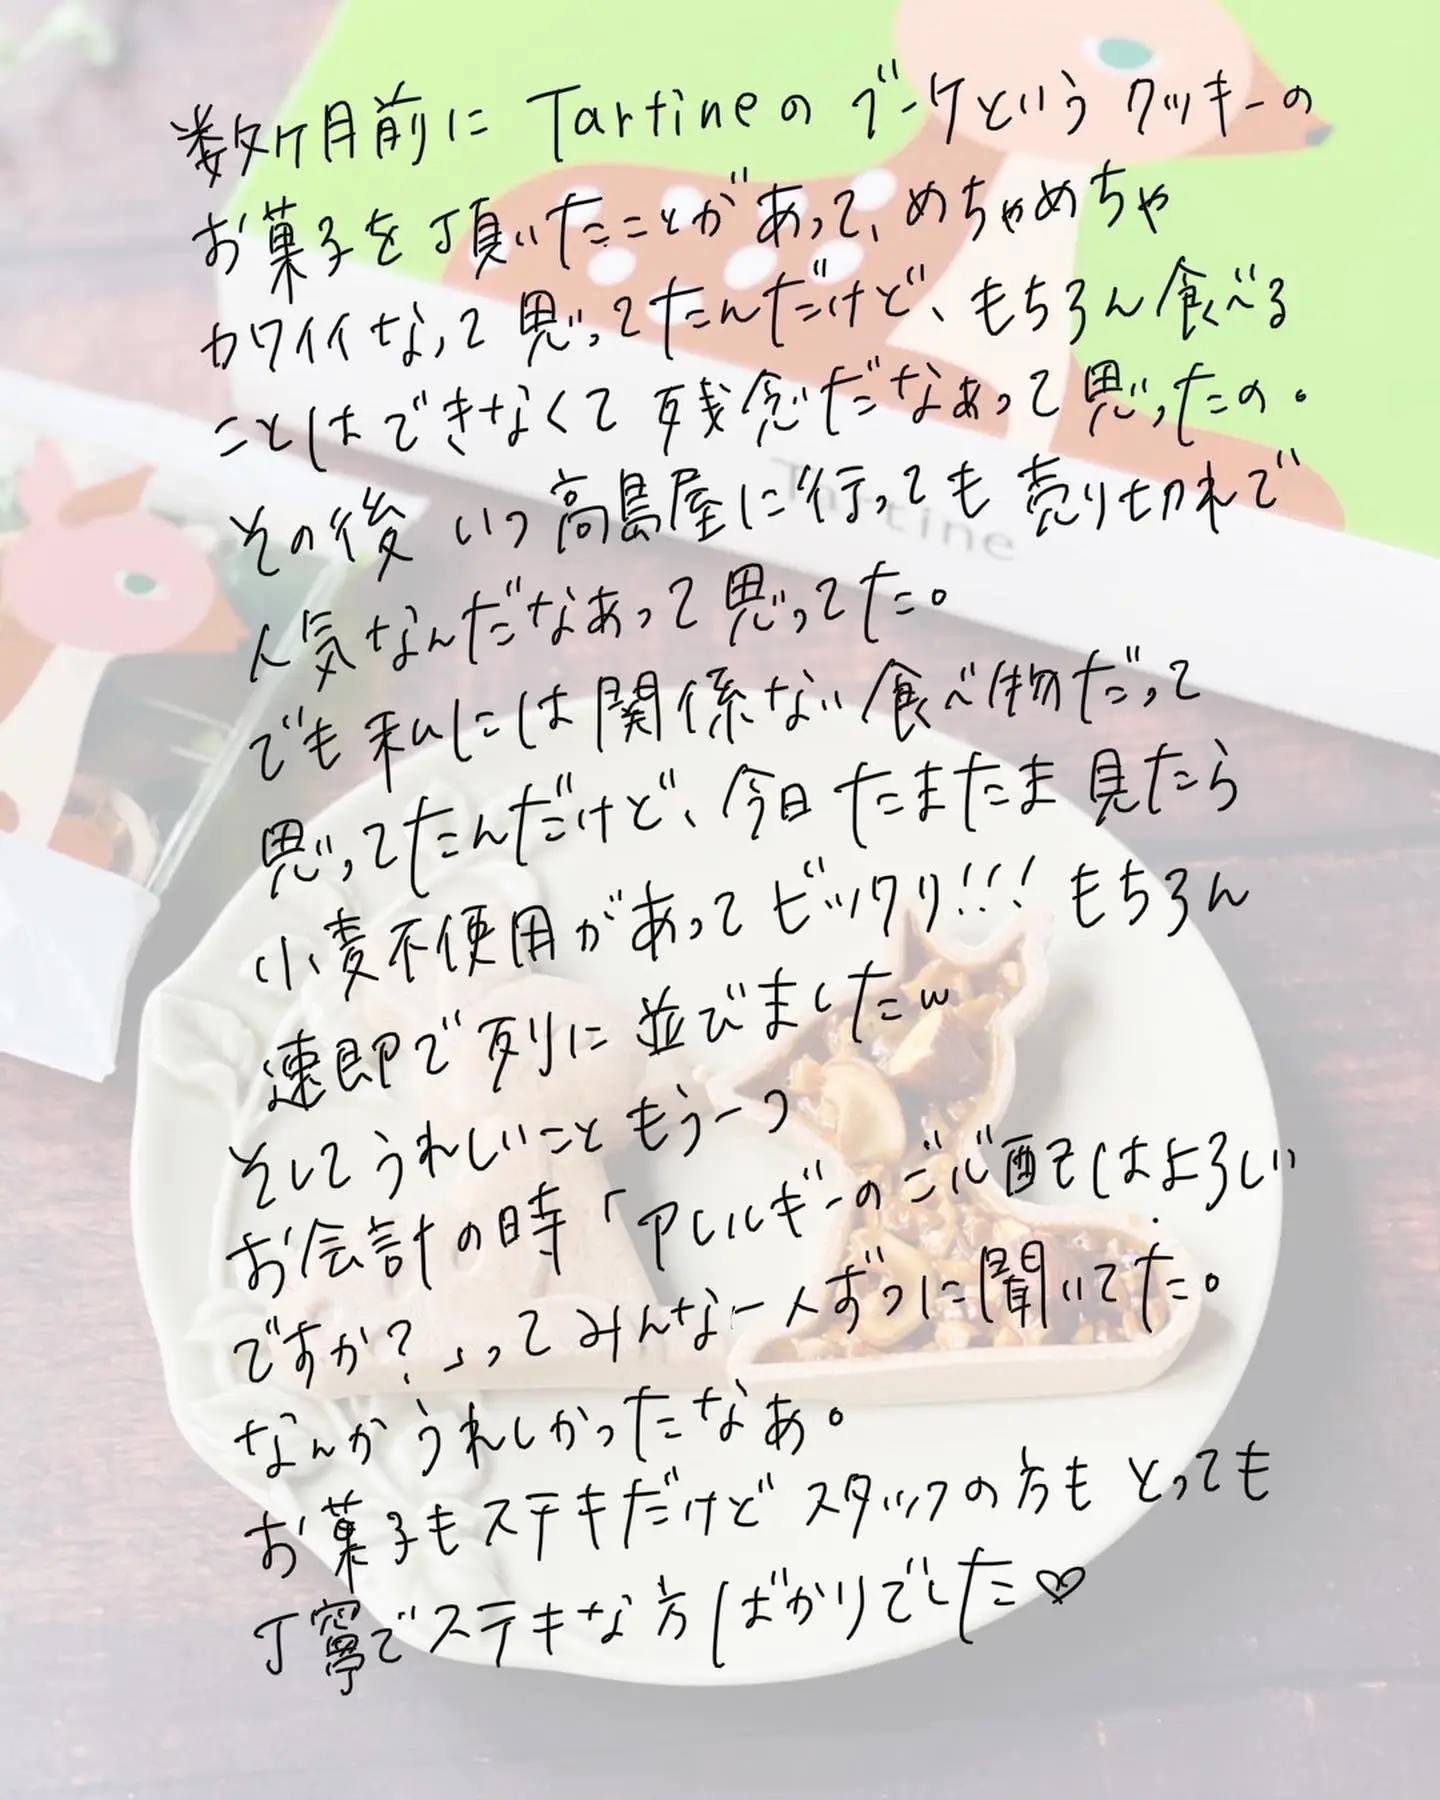 数ヶ月前に Tartineの ブーケという クッキーの
お菓子を 頂いたことがあって、めちゃめちゃ
カワイイなって 思ってたんだけど、もちろん 食べる
ことは できなくて 残念だなぁって 思ったの。
その後 いつ 高島屋に行っても 売り切れで
Tartine
人気なんだなあって 思ってた。
でも 私には 関係ない 食べ物だって
思ってたんだけど、今日 たまたま 見たら
小麦不使用があって ビックリ!!! もちろん
速即で 列に 並びましたw
そして うれしいこと もう一つ
お会計の時「アレルギーの ご心配はよろしい
ですか?」って みんな一人ずつに聞いてた。
なんか うれしかったなあ。
お菓子もステキだけど スタッフの方も とっても
丁寧で ステキな方 ばかりでした♡